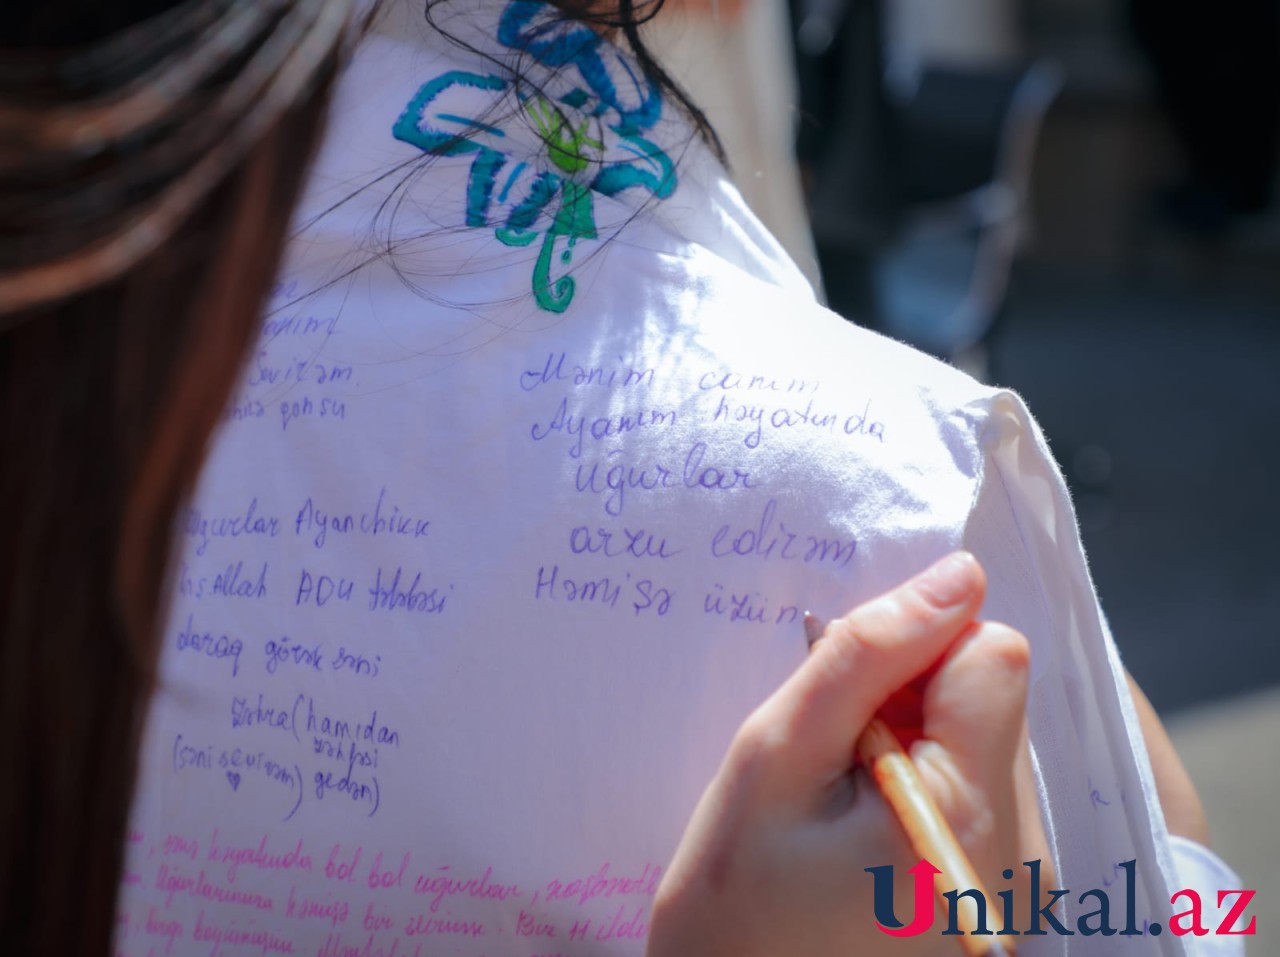 Sevirəm
Mənim canım
Ayanım həyatında
uğurlar
arzu edirəm
Həmişə üzün
uğurlar Ayanchikk
İnşAllah ADU tələbəsi
dəraq görək səni
Zəhra (hamıdan
zəhləsi
gedən)
(səni sevirəm)
həyatında bol bol uğurlar,
Uğurlarınıza həmişə bir sevinək. Biz 11 ildi
Unikal.az